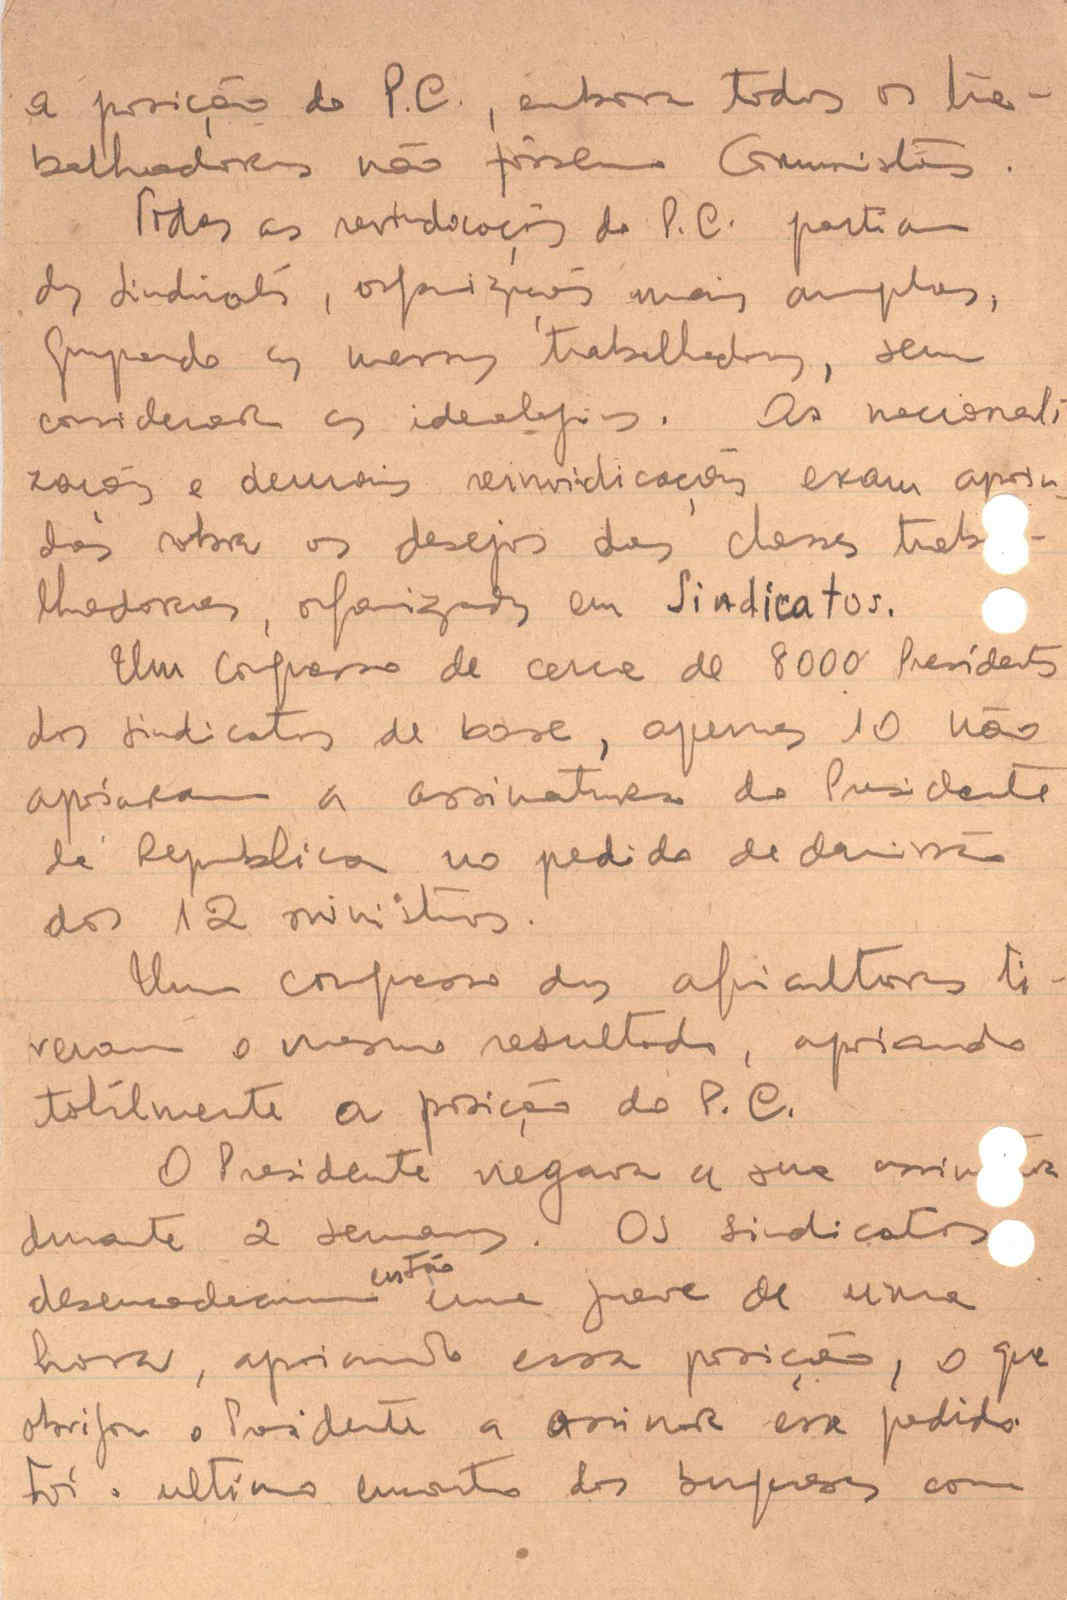 a posição do P.C., embora todos os tra-
balhadores não fôssem Comunistas.
Todas as revindicações do P.C. partiam
dos Sindicatos, organizações mais amplas,
grupando as massas trabalhadoras, sem
considerar as ideologias. As nacionali
zações e demais reinvidicações eram apoia-
das sobre os desejos das classes traba-
lhadoras, organizadas em Sindicatos.
Um Congresso de cerca de 8000 Presidentes
dos sindicatos de base, apenas 10 não
apoiaram a assinatura do Presidente
da Republica no pedido de demissão
dos 12 ministros.
Um congresso dos agricultores ti-
veram o mesmo resultado, apoiando
totalmente a posição do P.C.
O Presidente negara a sua assinatura
durante 2 semanas. Os sindicatos
desencadearam então uma greve de uma
hora, apoiando essa posição, o que
obrigou o Presidente a assinar esse pedido.
Foi o ultimo encontro dos burgueses com